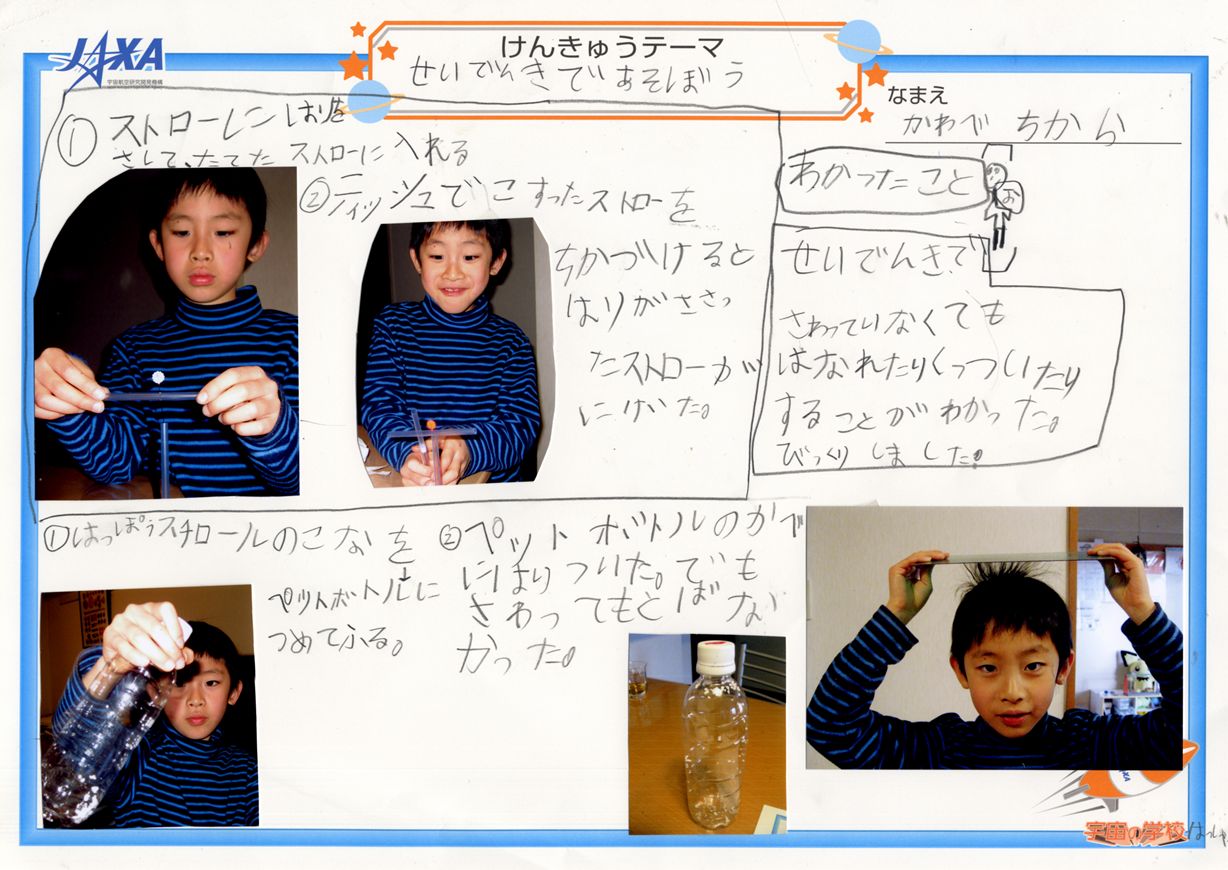 JAXA
宇宙航空研究開発機構
けんきゅうテーマ
せいでんきであそぼう
なまえ
かわべ ちから
① ストローにはりを
さして、たてた ストローに 入れる
②ティッシュでこすったストローを
ちかづけると
はりがささっ
たストローが
にげた。
わかったこと
お
せいでんきで
さわっていなくても
はなれたりくっついたり
することがわかった。
びっくりしました!
①はっぽうスチロールのこなを
ペットボトルに
つめてふる。
②ペットボトルのかべ
にはりついた。でも
さわってもとばな
かった。
JAXA
宇宙の学校